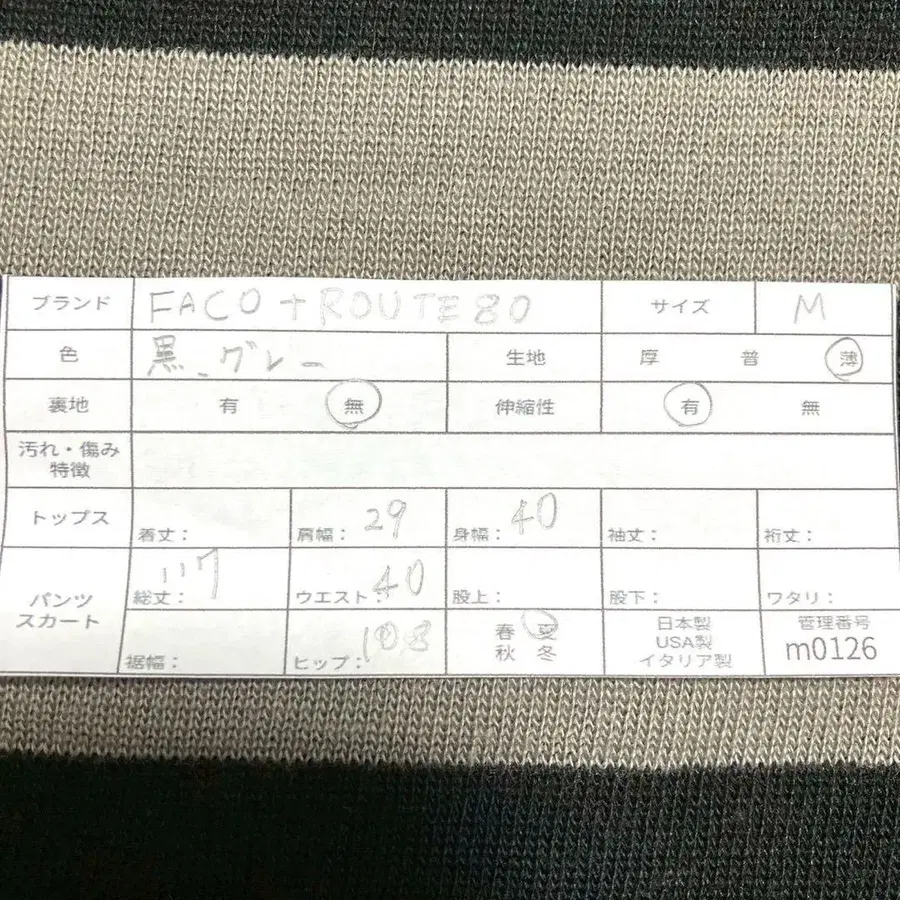 ブランド FACO+ROUTE80 サイズ M
色 黒、グレー 生地 厚 普 薄
裏地 有 無 伸縮性 有 無
汚れ・傷み
特徴
トップス 着丈: 肩幅: 29 身幅: 40 袖丈: 裄丈:
パンツ
スカート
総丈: 117 ウエスト: 40 股上: 股下: ワタリ:
裾幅: ヒップ: 春 夏
秋 冬
日本製
USA製
イタリア製
管理番号
m0126